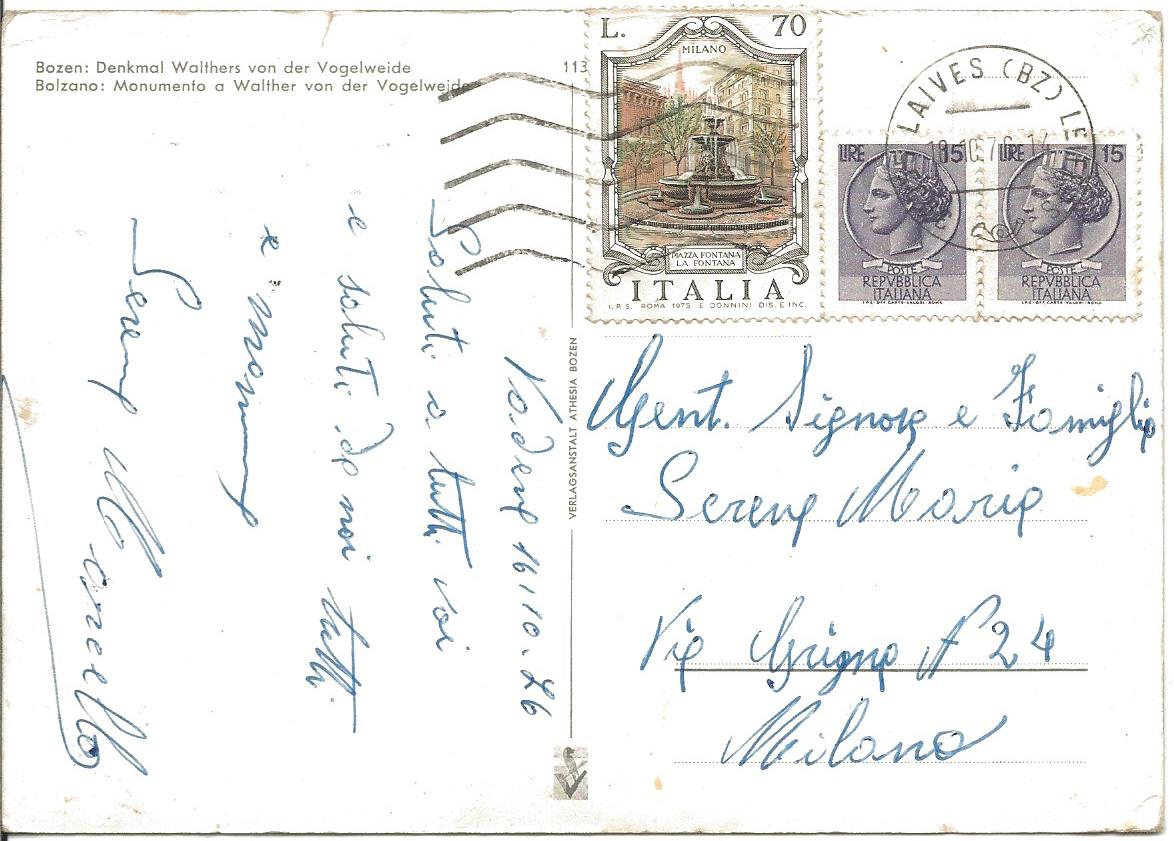 Bozen: Denkmal Walthers von der Vogelweide
Bolzano: Monumento a Walther von der Vogelweide
113
L. 70
MILANO
PIAZZA FONTANA
LA FONTANA
ITALIA
I.P.S. ROMA 1975 E DONNINI DIS. E INC.
LIRE 15
POSTE
REPVBBLICA
ITALIANA
LIRE 15
POSTE
REPVBBLICA
ITALIANA
LAIVES (BZ)
18.10.76
VERLAGSANSTALT ATHESIA BOZEN
Vadena 16.10.76
Saluti a tutti voi
e saluti da noi tutti
e mamma
Serena Marcello
Gent. Signora e Famiglia
Serena Maria
Via Grigna N 24
Milano